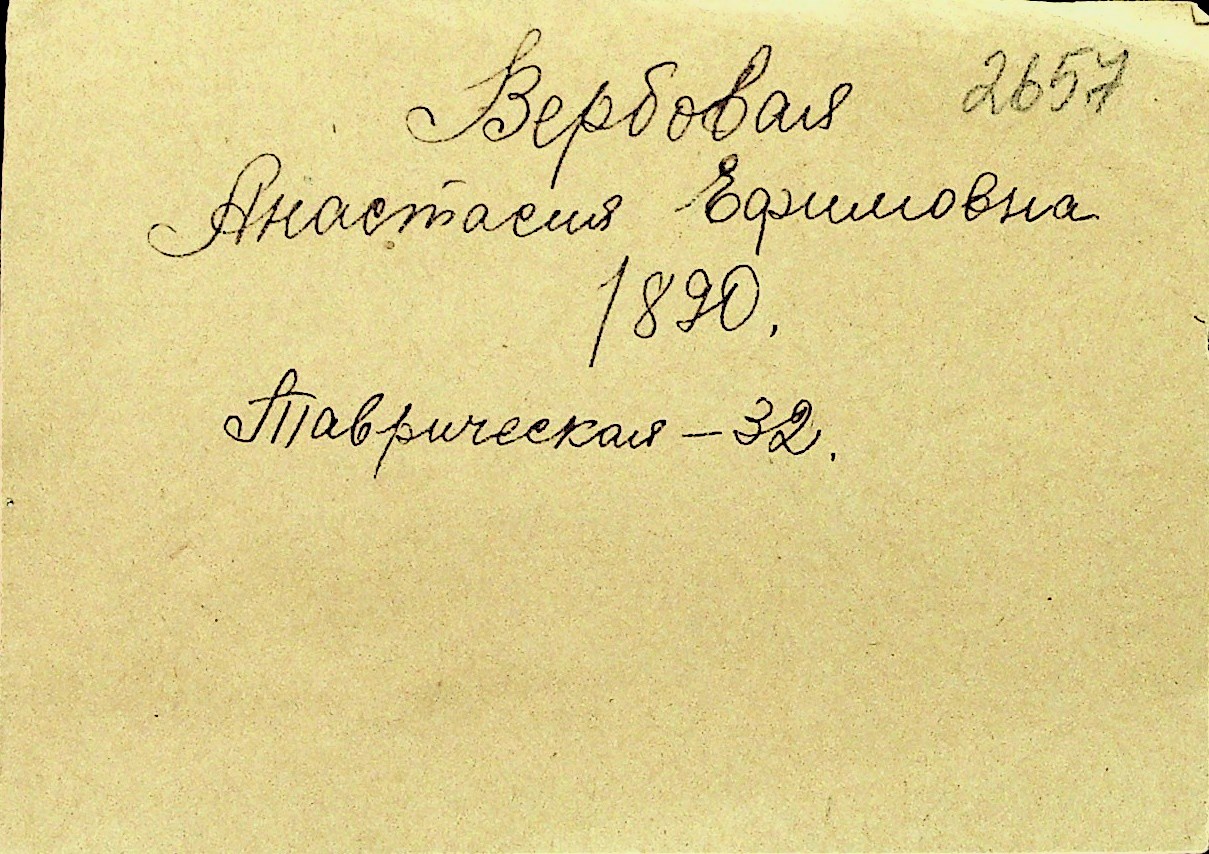 Вербовая 2657
Анастасия Ефимовна
1890.
Таврическая - 32.